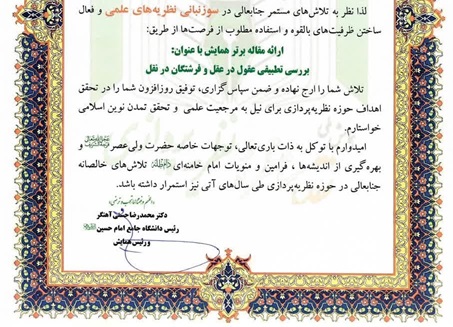 لذا نظر به تلاش‌های مستمر جنابعالی در سوزنبانی نظریه‌های علمی و فعال
ساختن ظرفیت‌های بالقوه و استفاده مطلوب از فرصت‌ها از طریق:
ارائه مقاله برتر همایش با عنوان:
بررسی تطبیقی عقول در عقل و فرشتگان در نقل
تلاش شما را ارج نهاده و ضمن سپاس‌گزاری، توفیق روزافزون شما را در تحقق
اهداف حوزه نظریه‌پردازی برای نیل به مرجعیت علمی و تحقق تمدن نوین اسلامی
خواستارم.
امیدوارم با توکل به ذات باری‌تعالی، توجهات خاصه حضرت ولی‌عصر و
بهره‌گیری از اندیشه‌ها ، فرامین و منویات امام خامنه‌ای تلاش‌های خالصانه
جنابعالی در حوزه نظریه‌پردازی طی سال‌های آتی نیز استمرار داشته باشد.
دکتر محمدرضا حسنی آهنگر
رئیس دانشگاه جامع امام حسین
و رئیس همایش